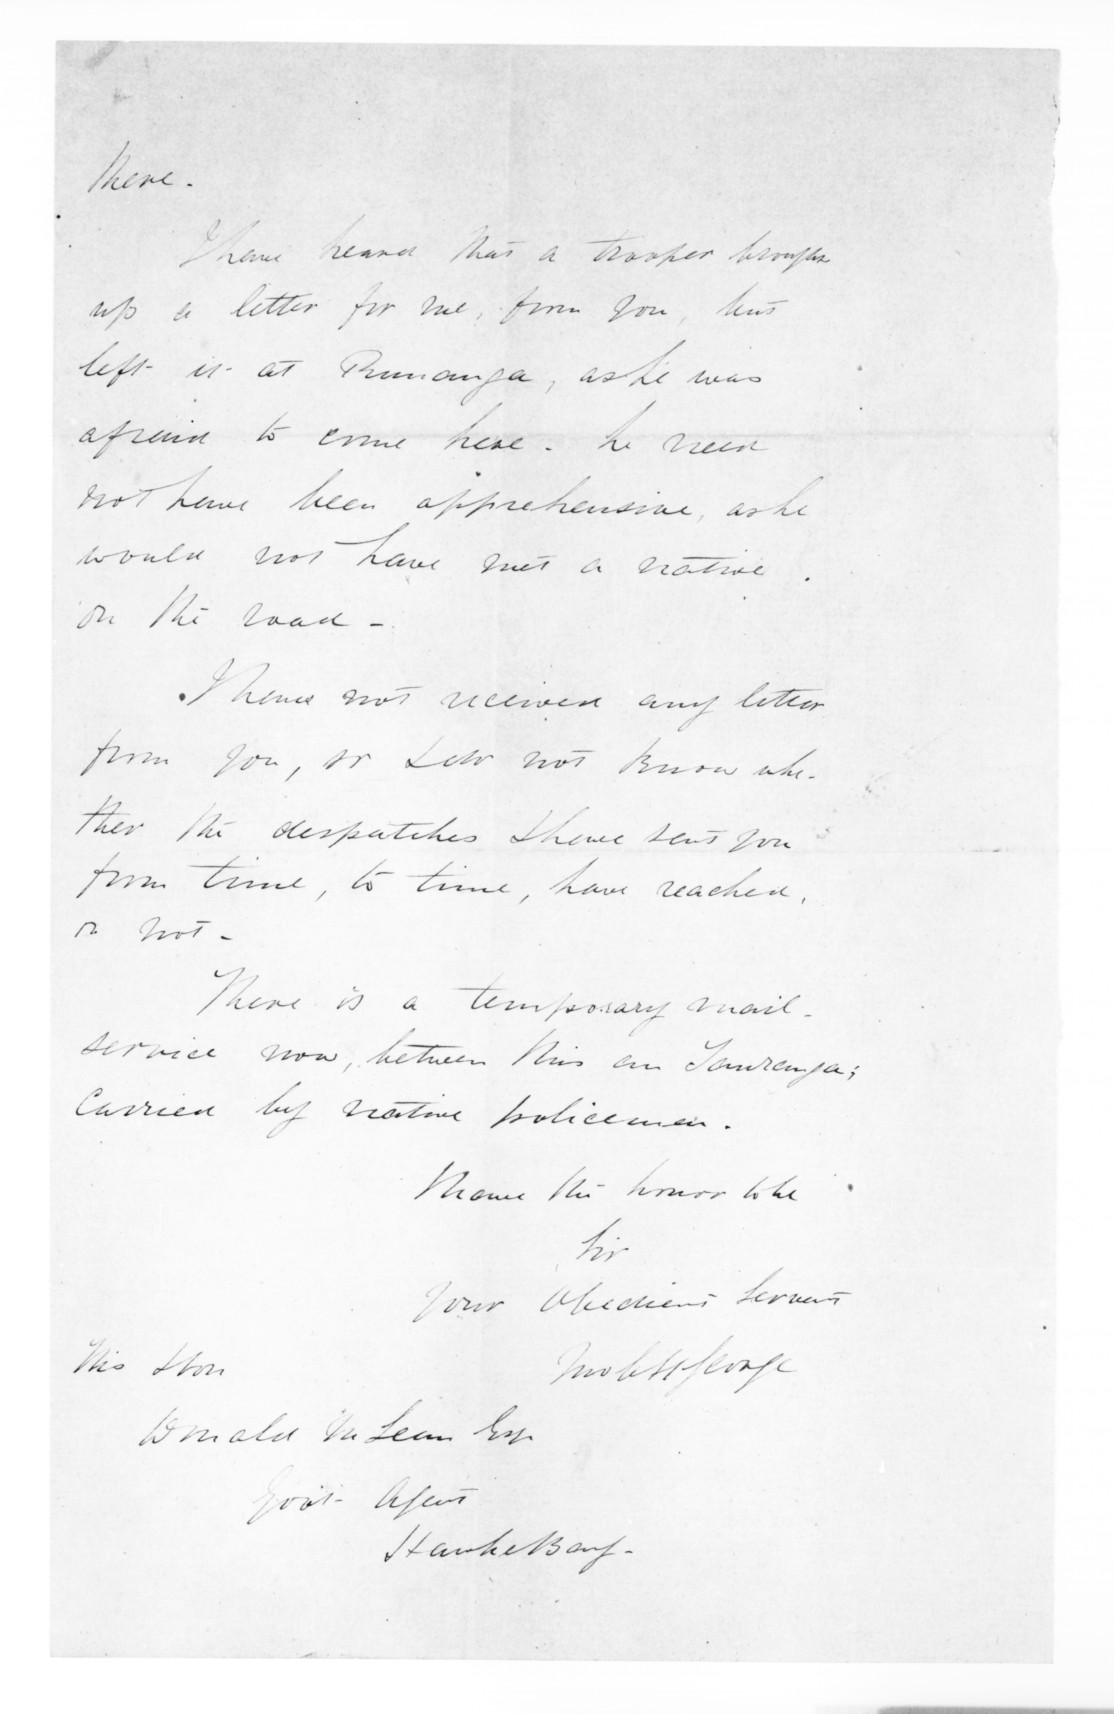 there.
I have heard that a trooper brought
up a letter for me, from you, but
left it at Runanga, as he was
afraid to come here. he need
not have been apprehensive, as he
would not have met a native.
on the road -
I have not received any letter
from you, so I do not know whe-
ther the despatches I have sent you
from time, to time, have reached,
or not -
There is a temporary mail-
service now, between this an Tauranga;
carried by native policemen.
I have the honor to be
Sir
Your Obedient Servant
George
His Hon
Donald McLean Esq
Govt - Agent
Hawke Bay -